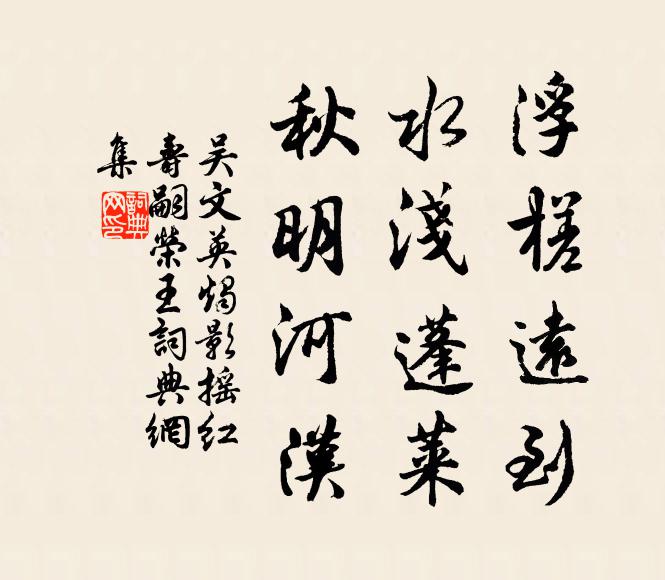 浮槎遠到
水淺蓬萊
秋明河漢
吴文英燭影摇红
壽嗣榮王詞典網
集
詞典
网印